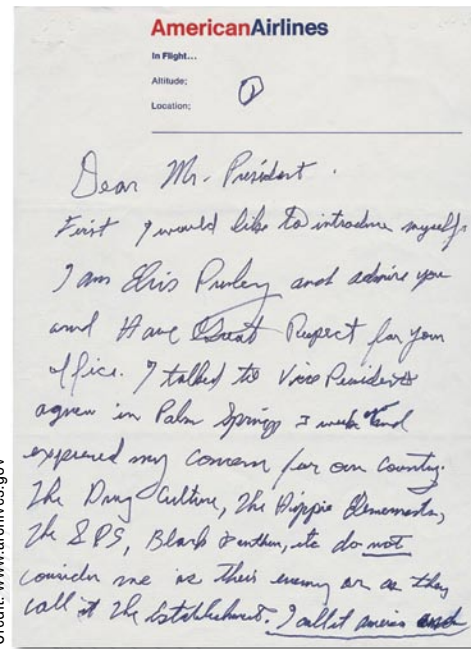 AmericanAirlines
In Flight...
Altitude;
Location;
①
Dear Mr. President.
First I would like to introduce myself.
I am Elvis Presley and admire you
and Have Great Respect for your
office. I talked to Vice President
agnew in Palm Springs I week and
expressed my concern for our country.
The Drug Culture, The Hippie Elements,
The SDS, Black Panthers, etc do not
consider me as their enemy or as they
call it The Establishment. I call it america and
Credit: www.archives.gov